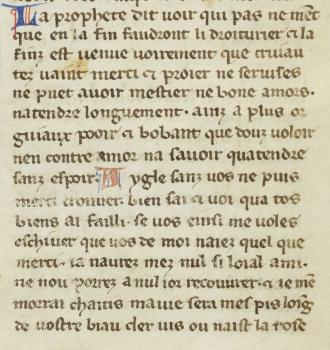 La prophete dit voir qui pas ne mẽt
que en la fin faudront li droiturier ⁊ la
finz est venue voirement que cruiau
tez vaint merci ⁊ proier ne seruises
ne puet auoir mestier ne bone amors.
natendre longuement. ainz a plus or
guiaux pooir ⁊ bobant que douz voloir
nen contre amor na sauoir quatendre
sanz espoir. A ygle sanz uos ne puis
merci trouver. bien sai ⁊ voi qua tos
biens ai failli. se uos einsi me voles
eschiver que uos de moi naiez quel que
merci. ia naurez mez nul si loial ami.
ne nou porrez a nul ior recouurer. ⁊ ie mẽ
morrai chaitis ma uie sera mes pis lonḡ
de uostre biau cler uis ou naist la rose